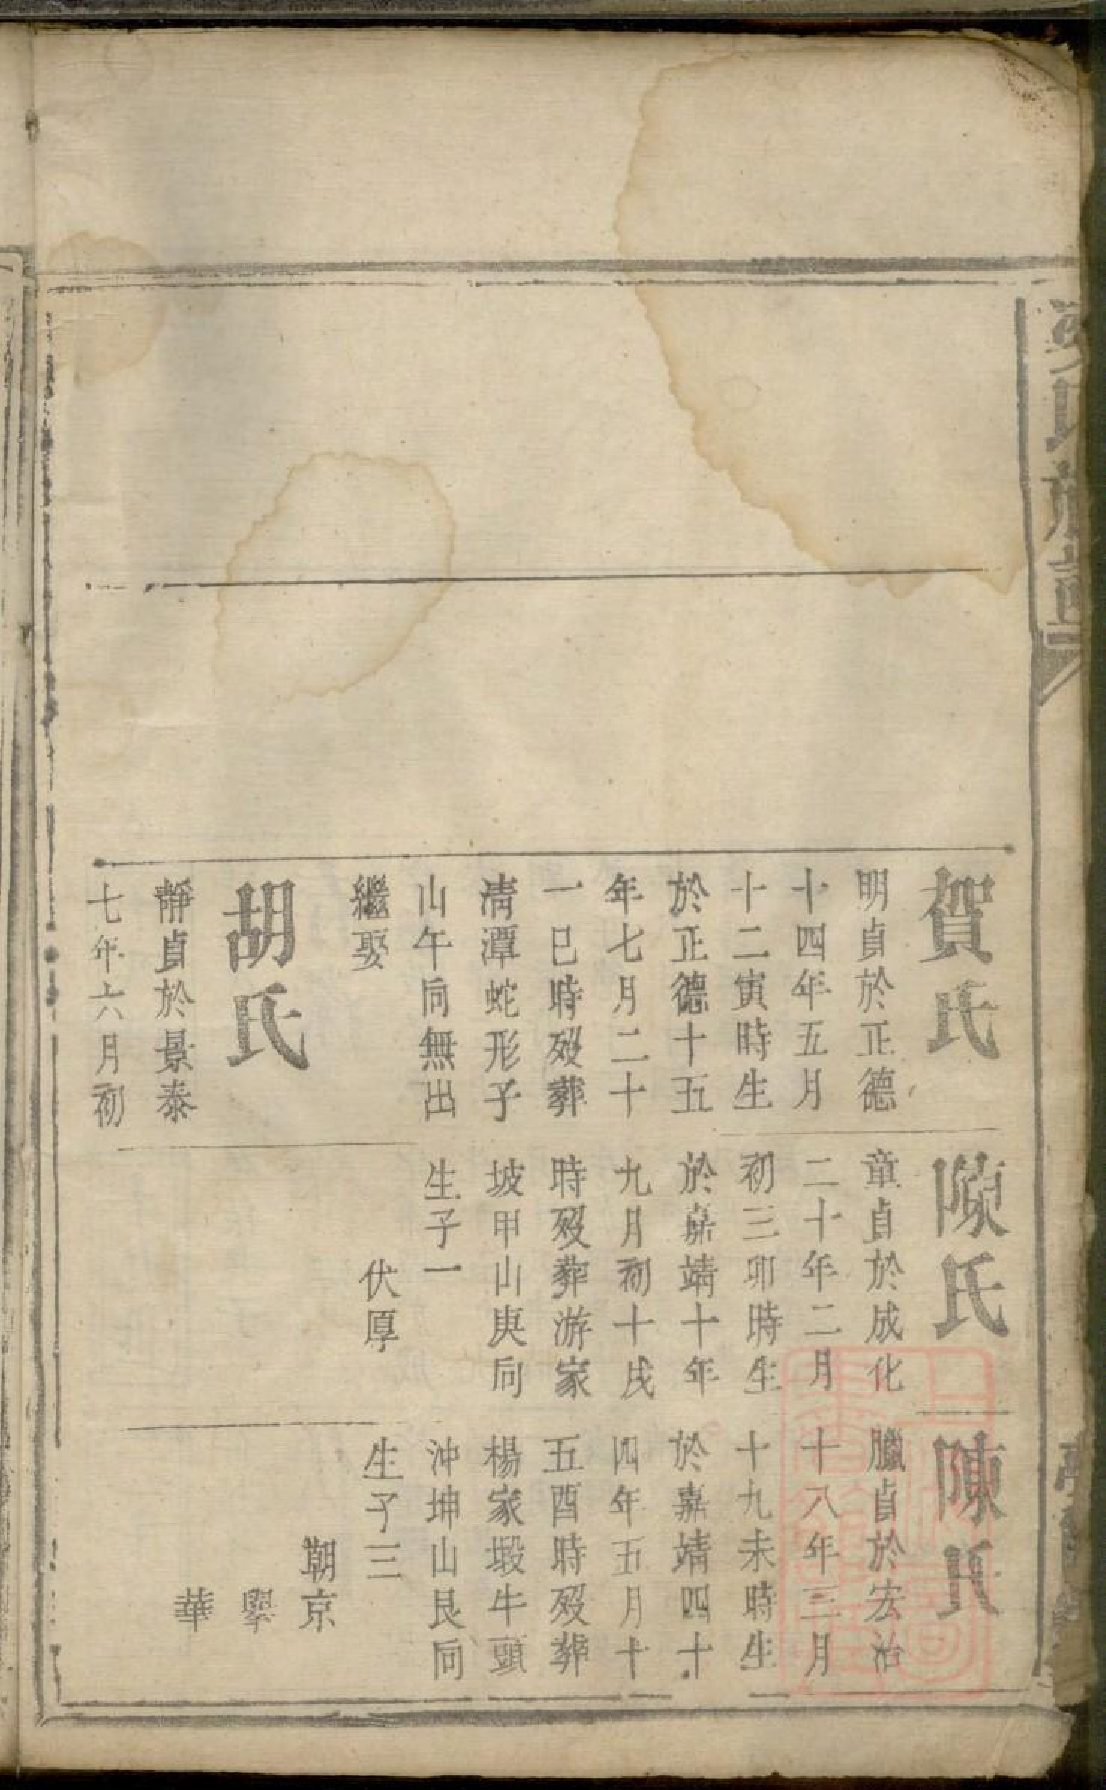 氏族譜
賀氏
明貞於正德
十四年五月
十二寅時生
於正德十五
年七月二十
一巳時歿葬
清潭蛇形子
山午向無出
繼娶
胡氏
靜貞於景泰
七年六月初
陳氏
童貞於成化
二十年二月
初三卯時生
於嘉靖十年
九月初十戌
時歿葬游家
坡甲山庚向
生子一
伏厚
陳氏
臘貞於宏治
十八年三月
十九未時生
於嘉靖四十
四年五月十
五酉時歿葬
楊家塅牛頭
沖坤山艮向
生子三
朝京
舉
華